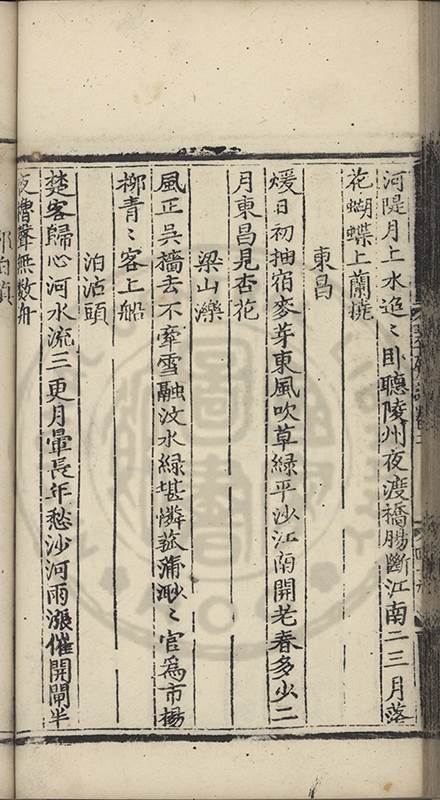 河隄月上水迢〻卧聽陵州夜渡橋腸斷江南二三月落
花蝴蝶上蘭橈
東昌
煖日初抽宿麥芽東風吹草綠平沙江南開老春多少二
月東昌見杏花
梁山濼
風正吳檣去不牽雪融汶水綠堪憐菰蒲渺〻官爲市楊
柳青〻客上船
泊沽頭
楚客歸心河水流三更月暈長年愁沙河雨漲催開閘半
夜檣聲無數舟